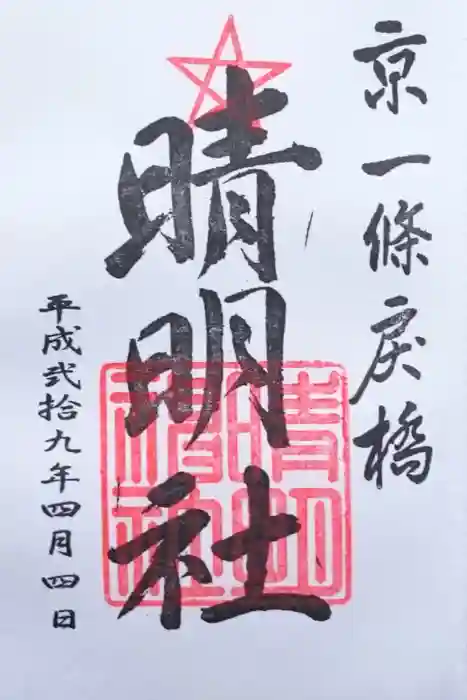 京一條戻橋
晴明社
平成弐拾九年四月四日
晴明神社